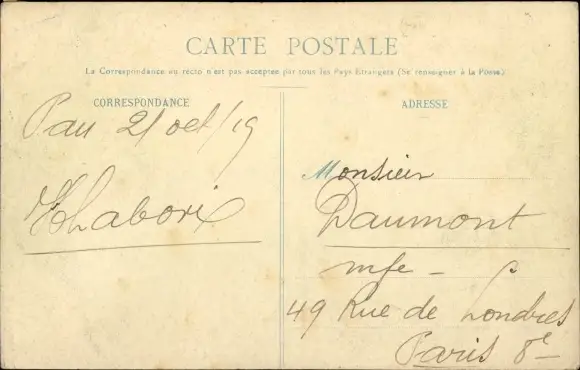 CARTE POSTALE
La Correspondance au recto n'est pas acceptée par tous les Pays Etrangers (Se renseigner à la Poste)
CORRESPONDANCE
Pau 21 oct/19
ADRESSE
Monsieur
Daumont
mfe -
49 Rue de Londres
Paris 8e